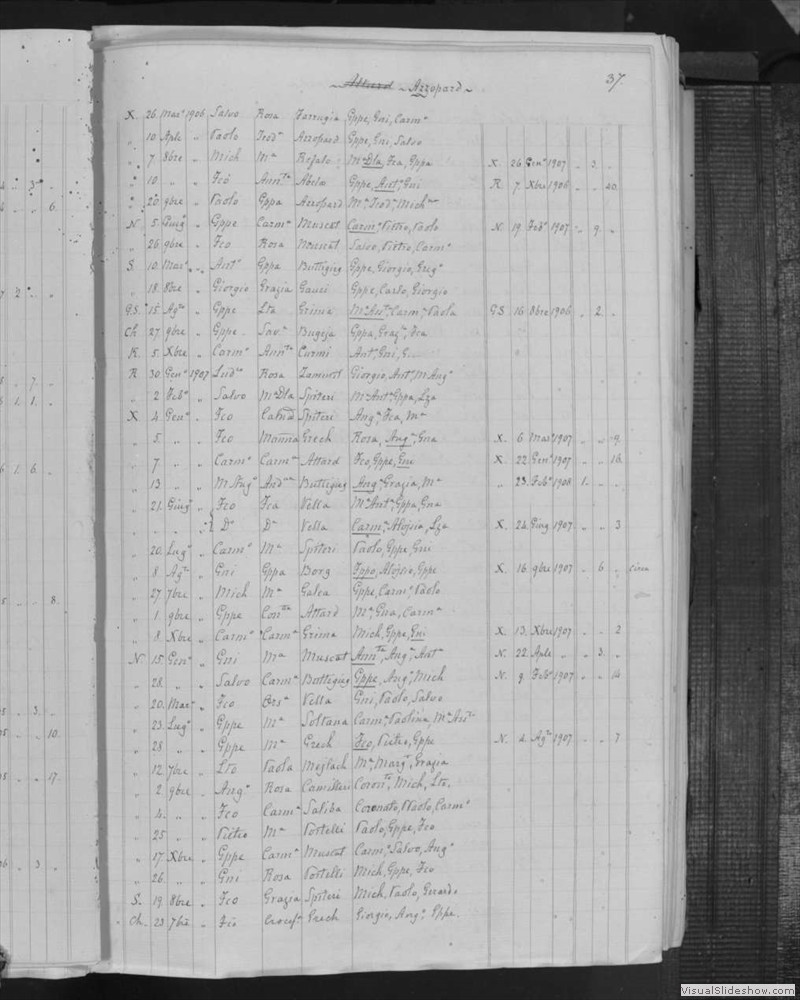 ~ Attard ~ Azzopard ~ 37.
X. 26. Marº 1906 Salvo Rosa Farrugia Gppe, Gni, Carmª
„ 10 Aple „ Paolo Teodª Azzopard Gppe, Gni, Salvo
„ 7 8bre „ Mich Mª Refalo Mª Dla, Fca, Gppa X. 26 Genº 1907 „ 3. „
„ 10. „ „ Fco Annᵗᵃ Abela Gppe, Antº, Gni R. 7. Xbre 1906 „ „ 20.
„ 20. 9bre „ Paolo Gppa Azzopard Mª Teodª, Mich
N 5. Giugº „ Gppe Carmª Muscat Carmª, Pietro, Paolo N. 19. Febº 1907 „ 9. „
„ 26. 9bre „ Fco Rosa Muscat Salvo, Pietro, Carmº
S. 10. Marº „ Antº Gppa Buttigieg Gppe, Giorgio, Gregº
„ 18. 8bre „ Giorgio Grazia Gauci Gppe, Carlo, Giorgio
G.S. 15. Agᵗᵒ „ Gppe Lta Grima Mª Antª, Carmª, Paola G.S. 16. 8bre 1906 „ 2. „
Ch 27. 9bre „ Gppe Savª Bugeja Gppa, Grazª, Fca
R. 5. Xbre „ Carmº Annᵗᵃ Curmi Antº, Gni,
R 30. Genº 1907 Ludᵛᵒ Rosa Zammit Giorgio, Antº, M. Angº
„ 2 Febº „ Salvo Mª Dla Spiteri Mª Antª, Gppa, Lza
X 4. Genº „ Fco Spiteri Angª, Fca, Mª
„ 5. „ „ Fco Grech Rosa, Angª, Gna X. 6. Marº 1907 „ „ 9.
„ 7 „ „ Carmº Carmª Attard Fco, Gppe, Gni X. 22. Genº 1907 „ „ 16.
„ 13 „ „ M. Angº Andᵉᵃ Buttigieg Angª, Grazia, Mª „ 23. Febº 1908 1. „ „
„ 21. Giugº „ Fco Fca Vella Mª Antª, Gppa, Gna
„ „ „ „ Dº Dª Vella Carmª, Alojsia, Lza X. 24. Giug 1907. „ „ 3
„ 20. Lugº „ Carmº Mª Spiteri Paolo, Gppe, Gni
„ 8. Agᵗᵒ „ Gni Gppa Borg Alojsio, Gppe X. 16. 9bre 1907 „ 6 „ circa
„ 27 7bre „ Mich Mª Galea Gppe, Carmº, Paolo
„ 1. 9bre „ Gppe Conᵗᵗᵃ Attard Mª, Gna, Carmª
„ 8. Xbre „ Carmº Carmª Grima Mich, Gppe, Gni X. 13. Xbre 1907 „ „ 2
N 15. Genº „ Gni Mª Muscat Annᵗᵃ, Angª, Antª N. 22. Aple „ „ 3. „
„ 28. „ „ Salvo Carmª Buttigieg Gppe, Angº, Mich N. 9. Febº 1907 „ „ 14
„ 20. Marº „ Fco Orsª Vella Gni, Paolo, Salvo
„ 23. Lugº „ Gppe Mª Soltana Carmª, Paolina, Mª Antª
„ 28 „ „ Gppe Mª Grech Fco, Pietro, Gppe N. 4. Agᵗᵒ 1907 „ „ 7
„ 12. 7bre „ Lto Paola Mejlach Mª, Margª, Grazia
„ 2. 9bre „ Angº Rosa Camilleri Coronᵗᵒ, Mich, Lto.
„ 4. „ „ Fco Carmª Saliba Coronato, Paolo, Carmº
„ 25 „ „ Pietro Mª Portelli Paolo, Gppe, Fco
„ 17. Xbre „ Gppe Carmª Muscat Carmº, Salvo, Angº
„ 26. „ „ Gni Rosa Portelli Mich, Gppe, Fco
S. 19. 8bre „ Fco Grazia Spiteri Mich, Paolo, Gerardo
Ch. 23. 7bre „ Fco Crocefª Grech Giorgio, Angº, Gppe.
VisualSlideshow.com